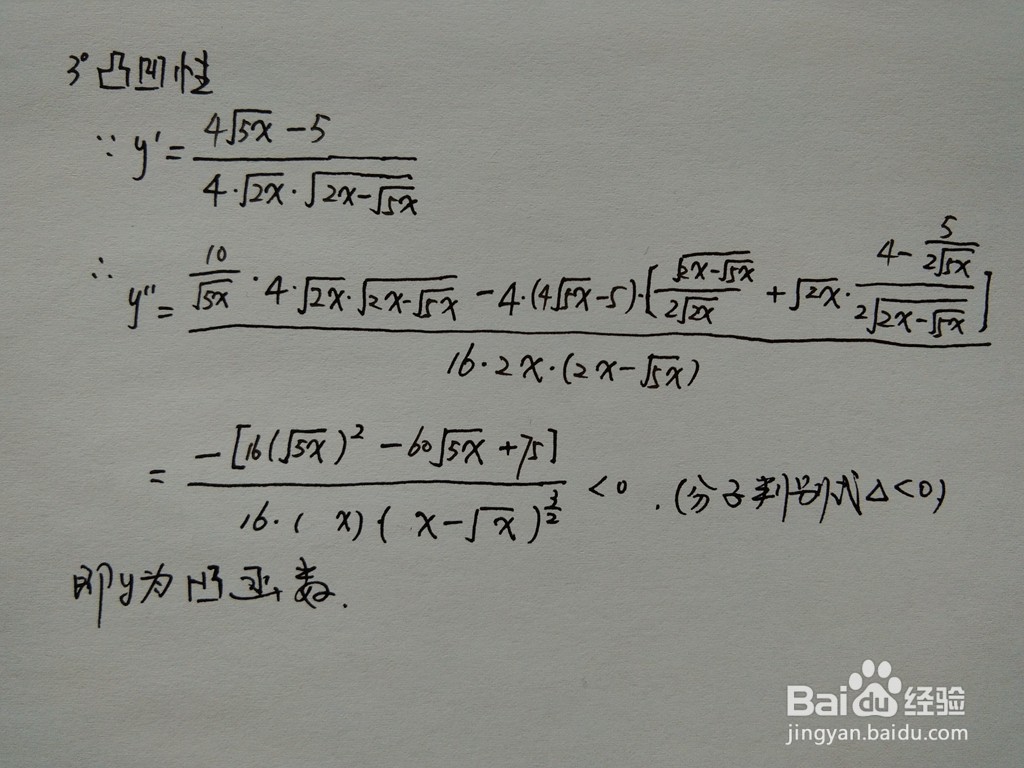 3° 凸凹性
∵ y' = (4√5x - 5) / (4·√2x·√(2x-√5x))
∴ y'' = (10/√5x ·4·√2x·√(2x-√5x) - 4·(4√5x-5)·[√(2x-√5x)/(2√2x) + √2x·(4 - 5/(2√5x))/(2√(2x-√5x))]) / (16·2x·(2x-√5x))
= -[16(√5x)² - 60√5x + 75] / (16·( x)( x-√x)^(3/2)) < 0 .(分子判别式Δ<0)
即y为凹函数.
Bai 经验
jingyan.baidu.com